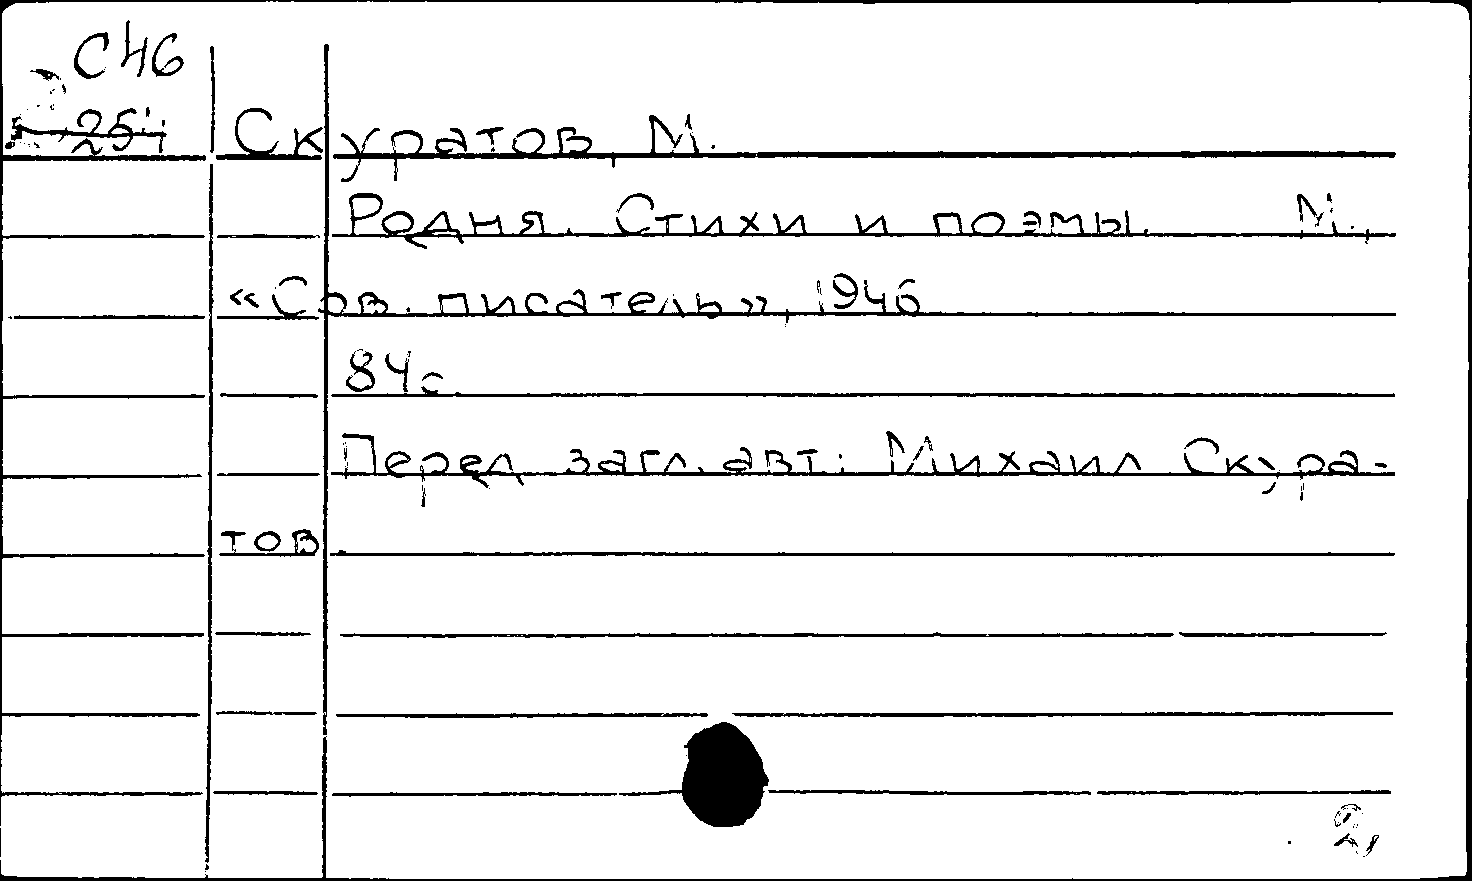 С46
Скуратов, М.
Родня. Стихи и поэмы. М.,
«Сов. писатель», 1946
84с
Перед загл. авт.: Михаил Скура-
тов.
2,